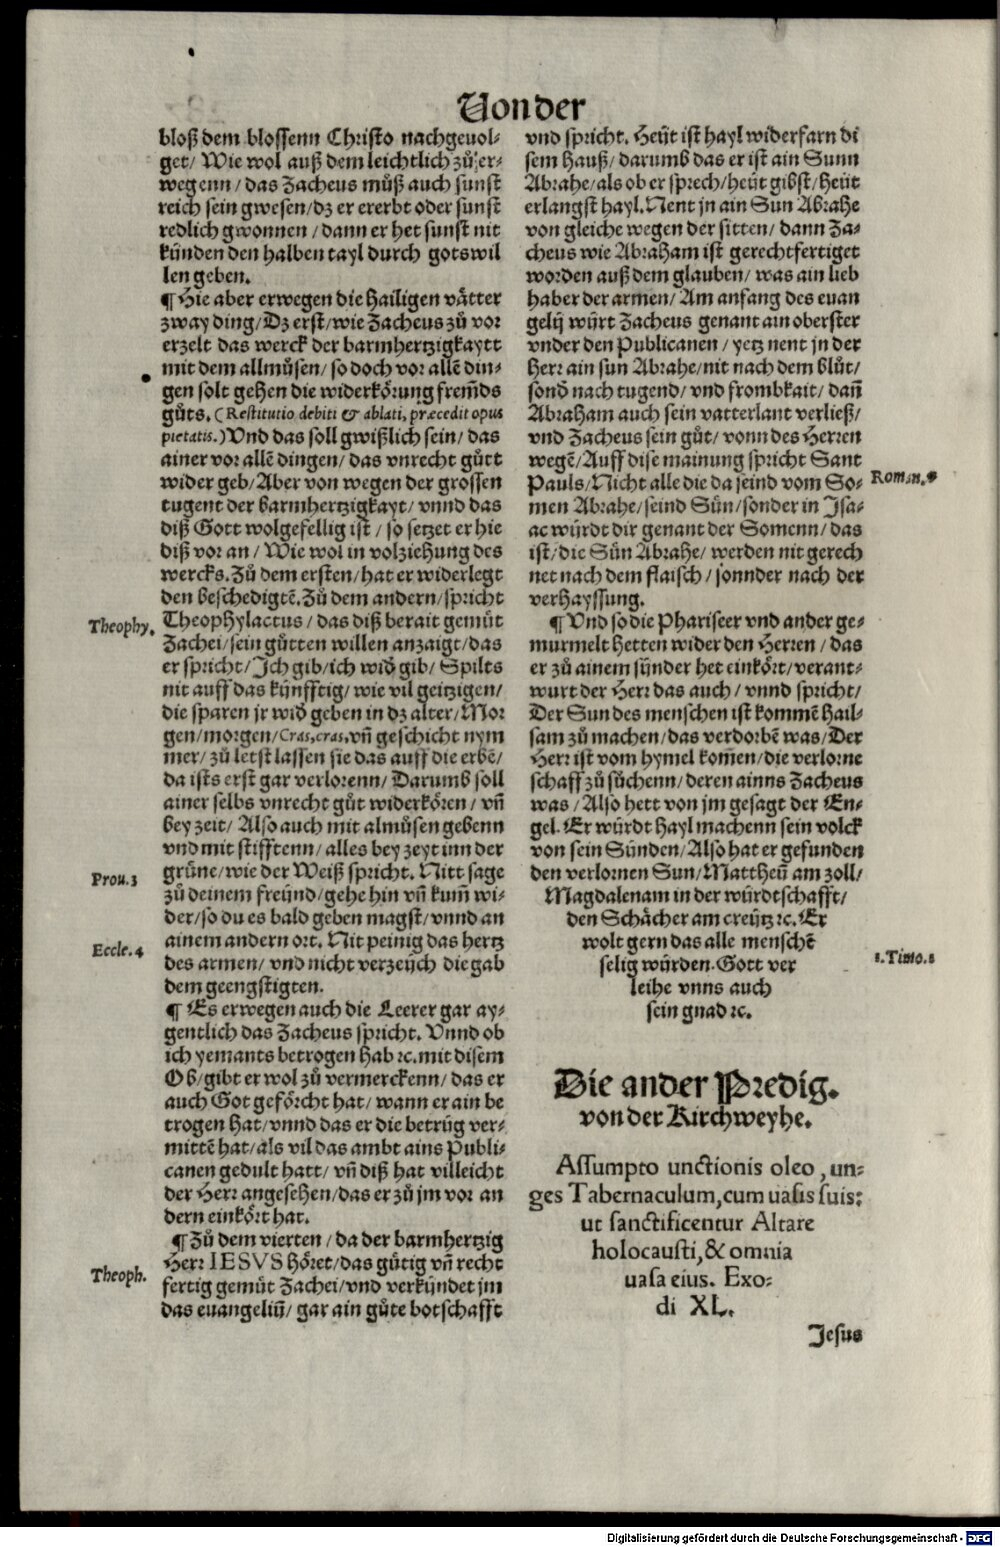 Von der
bloß dem blossenn Christo nachgeuol-
get/ Wie wol auß dem leichtlich zů er-
wegenn/ das Zacheus můß auch sunst
reich sein gwesen/ dz er ererbt oder sunst
redlich gwonnen/ dann er het sunst nit
künden den halben tayl durch gots wil
len geben.
¶ Hie aber erwegen die hailigen vätter
zway ding/ Dz erst/ wie Zacheus zů vor
erzelt das werck der barmhertzigkaytt
mit dem allmůsen/ so doch vor allē din-
gen solt gehen die widerkörung frem̄ds
gůts. (Restitutio debiti & ablati, præcedit opus
pietatis.) Vnd das soll gwißlich sein/ das
ainer vor allē dingen/ das vnrecht gůtt
wider geb/ Aber von wegen der grossen
tugent der barmhertzigkayt/ vnnd das
diß Gott wolgefellig ist/ so setzet er hie
diß vor an/ Wie wol in volziehung des
wercks. Zů dem ersten/ hat er widerlegt
den beschedigtē. Zů dem andern/ spricht
Theophy.
Theophylactus/ das diß berait gemüt
Zachei/ sein gůtten willen anzaigt/ das
er spricht/ Ich gib/ ich wid̄ gib/ Spilts
nit auff das künfftig/ wie vil geitzigen/
die sparen jr wid̄ geben in dz alter/ Mor
gen/ morgen/ Cras, cras, vn̄ geschicht nym
mer/ zů letst lassen sie das auff die erbē/
da ists erst gar verlorenn/ Darumb soll
ainer selbs vnrecht gůt widerkören/ vn̄
bey zeit/ Also auch mit almůsen gebenn
vnd mit stifftenn/ alles bey zeyt inn der
grüne/ wie der Weiß spricht. Nitt sage
Prou. 3
zů deinem freünd/ gehe hin vn̄ kum̄ wi-
der/ so du es bald geben magst/ vnnd an
ainem andern ort. Nit peinig das hertz
Eccle. 4
des armen/ vnd nicht verzeüch die gab
dem geengstigten.
¶ Es erwegen auch die Leerer gar ay-
gentlich das Zacheus spricht. Vnnd ob
ich yemants betrogen hab ꝛc. mit disem
Ob/ gibt er wol zů vermerckenn/ das er
auch Got geförcht hat/ wann er ain be
trogen hat/ vnnd das er die betrüg ver-
mittē hat/ als vil das ambt ains Publi-
canen gedult hatt/ vn̄ diß hat villeicht
der Herr angesehen/ das er zů jm vor an
dern einkört hat.
¶ Zů dem vierten/ da der barmhertzig
Herr IESVS höret/ das gütig vn̄ recht
Theoph.
fertig gemüt Zachei/ vnd verkündet jm
das euangeliū/ gar ain gůte botschafft
vnd spricht. Heüt ist hayl widerfarn di
sem hauß/ darumb das er ist ain Sunn
Abrahe/ als ob er sprech/ heüt gibst/ heüt
erlangst hayl. Nent jn ain Sun Abrahe
von gleiche wegen der sitten/ dann Za-
cheus wie Abraham ist gerechtfertiget
worden auß dem glauben/ was ain lieb
haber der armen/ Am anfang des euan
gelij würt Zacheus genant ain oberster
vnder den Publicanen/ yetz nent jn der
Herr ain sun Abrahe/ nit nach dem blůt/
sond̄ nach tugend/ vnd frombkait/ dan̄
Abraham auch sein vatterlant verließ/
vnd Zacheus sein gůt/ vonn des Herren
wegē/ Auff dise mainung spricht Sant
Pauls/ Nicht alle die da seind vom So-
Roman. 9
men Abrahe/ seind Sün/ sonder in Isa-
ac würdt dir genant der Somenn/ das
ist/ die Sün Abrahe/ werden nit gerech
net nach dem flaisch/ sonnder nach der
verhayssung.
¶ Vnd so die Phariseer vnd ander ge-
murmelt hetten wider den Herren/ das
er zů ainem sünder het einkört/ verant-
wurt der Herr das auch/ vnnd spricht/
Der Sun des menschen ist kommē hail-
sam zů machen/ das verdorbē was/ Der
Herr ist vom hymel kom̄en/ die verlorne
schaff zů sůchenn/ deren ainns Zacheus
was/ Also hett von jm gesagt der En-
gel. Er würdt hayl machenn sein volck
von sein Sünden/ Also hat er gefunden
den verlornen Sun/ Mattheū am zoll/
Magdalenam in der würdtschafft/
den Schächer am creütz ꝛc. Er
wolt gern das alle menschē
selig würden. Gott ver
1. Timo. 2
leihe vnns auch
sein gnad ꝛc.
Die ander Predig.
von der Kirchweyhe.
Assumpto unctionis oleo, un-
ges Tabernaculum, cum uasis suis:
ut sanctificentur Altare
holocausti, & omnia
uasa eius. Exo-
di XL.
Jesus
Digitalisierung gefördert durch die Deutsche Forschungsgemeinschaft - DFG